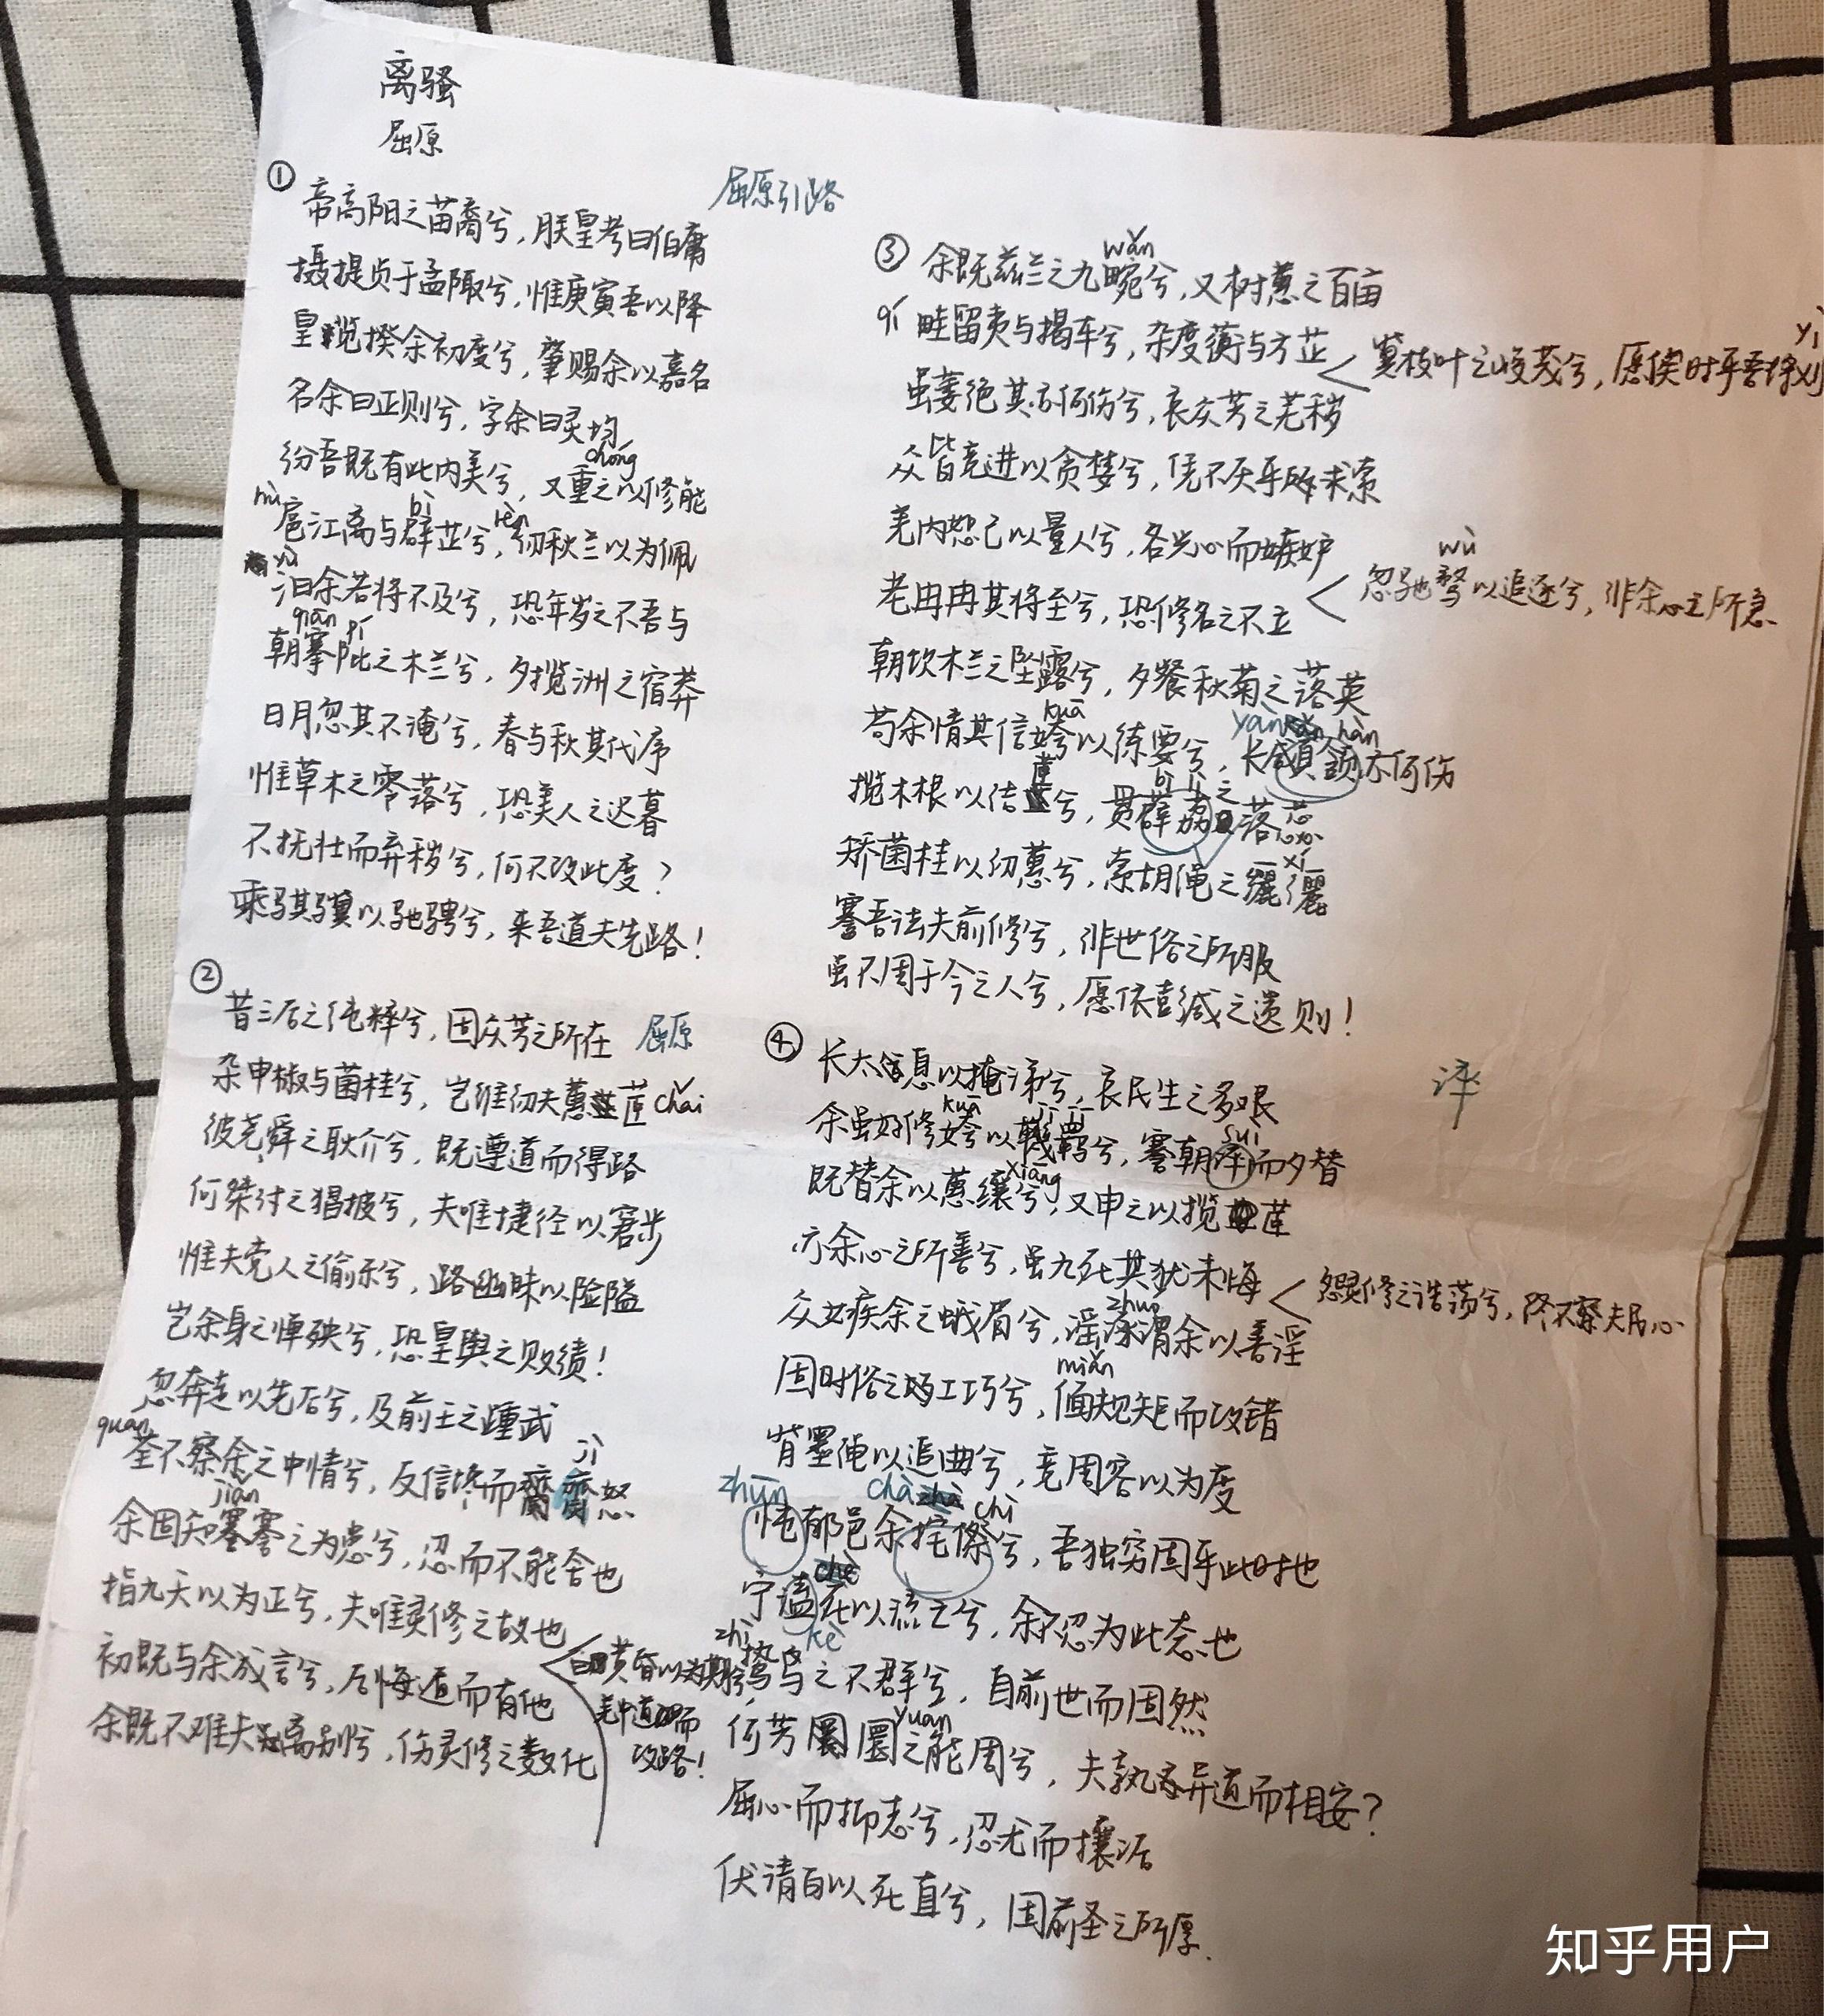 离骚
屈原
屈原引路
①
帝高阳之苗裔兮，朕皇考曰伯庸
摄提贞于孟陬兮，惟庚寅吾以降
皇览揆余初度兮，肇赐余以嘉名
名余曰正则兮，字余曰灵均
chóng
纷吾既有此内美兮，又重之以修能
bì rèn
扈江离与辟芷兮，纫秋兰以为佩
yù
汩余若将不及兮，恐年岁之不吾与
qiān pí
朝搴阰之木兰兮，夕揽洲之宿莽
日月忽其不淹兮，春与秋其代序
惟草木之零落兮，恐美人之迟暮
不抚壮而弃秽兮，何不改此度？
乘骐骥以驰骋兮，来吾道夫先路！
②
昔三后之纯粹兮，固众芳之所在 屈原
杂申椒与菌桂兮，岂维纫夫蕙茝 chǎi
彼尧舜之耿介兮，既遵道而得路
何桀纣之猖披兮，夫唯捷径以窘步
惟夫党人之偷乐兮，路幽昧以险隘
岂余身之惮殃兮，恐皇舆之败绩！
忽奔走以先后兮，及前王之踵武
quán jì
荃不察余之中情兮，反信谗而齌怒
jiǎn
余固知謇謇之为患兮，忍而不能舍也
指九天以为正兮，夫唯灵修之故也
曰黄昏以为期兮，
羌中道而
改路！
初既与余成言兮，后悔遁而有他
余既不难夫离别兮，伤灵修之数化
③
wǎn
余既兹兰之九畹兮，又树蕙之百亩
qí 畦留夷与揭车兮，杂度蘅与方芷
yì
冀枝叶之峻茂兮，愿俟时乎吾将刈
虽萎绝其亦何伤兮，哀众芳之芜秽
众皆竞进以贪婪兮，凭不厌乎求索
羌内恕己以量人兮，各兴心而嫉妒
wù
忽驰骛以追逐兮，非余心之所急
老冉冉其将至兮，恐修名之不立
朝饮木兰之坠露兮，夕餐秋菊之落英
kuā yàn hàn
苟余情其信姱以练要兮，长顑颔亦何伤
bì lì 之
揽木根以结茝兮，贯薜荔落蕊
xǐ
矫菌桂以纫蕙兮，索胡绳之纚纚
謇吾法夫前修兮，非世俗之所服
虽不周于今之人兮，愿依彭咸之遗则！
④
长太息以掩涕兮，哀民生之多艰
谇
kuā jī jī suì
余虽好修姱以鞿羁兮，謇朝谇而夕替
xiāng
既替余以蕙纕兮，又申之以揽茝
亦余心之所善兮，虽九死其犹未悔
怨灵修之浩荡兮，终不察夫民心
zhuó
众女疾余之蛾眉兮，谣诼谓余以善淫
miǎn
固时俗之工巧兮，偭规矩而改错
背墨绳以追曲兮，竞周容以为度
zhūn chà chì
忳郁邑余侘傺兮，吾独穷困乎此时也
kè
宁溘死以流亡兮，余不忍为此态也
zhì
鸷鸟之不群兮，自前世而固然
yuán
何方圜之能周兮，夫孰异道而相安？
屈心而抑志兮，忍尤而攘诟
伏清白以死直兮，固前圣之所厚.
知乎用户